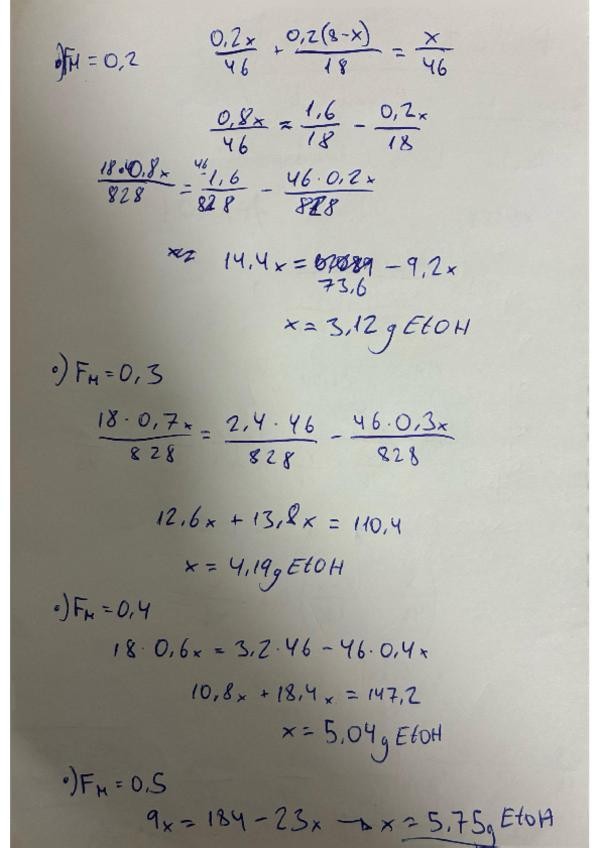 •) Fм = 0,2 0,2x/46 + 0,2(8-x)/18 = x/46
0,8x/46 = 1,6/18 - 0,2x/18
18·0,8x/828 = 46·1,6/828 - 46·0,2x/828
14,4x = 73,6 - 9,2x
x = 3,12 g EtOH
•) Fм = 0,3
18·0,7x/828 = 2,4·46/828 - 46·0,3x/828
12,6x + 13,8x = 110,4
x = 4,19 g EtOH
•) Fм = 0,4
18·0,6x = 3,2·46 - 46·0,4x
10,8x + 18,4x = 147,2
x = 5,04 g EtOH
•) Fм = 0,5
9x = 184 - 23x → x = 5,75g EtOH